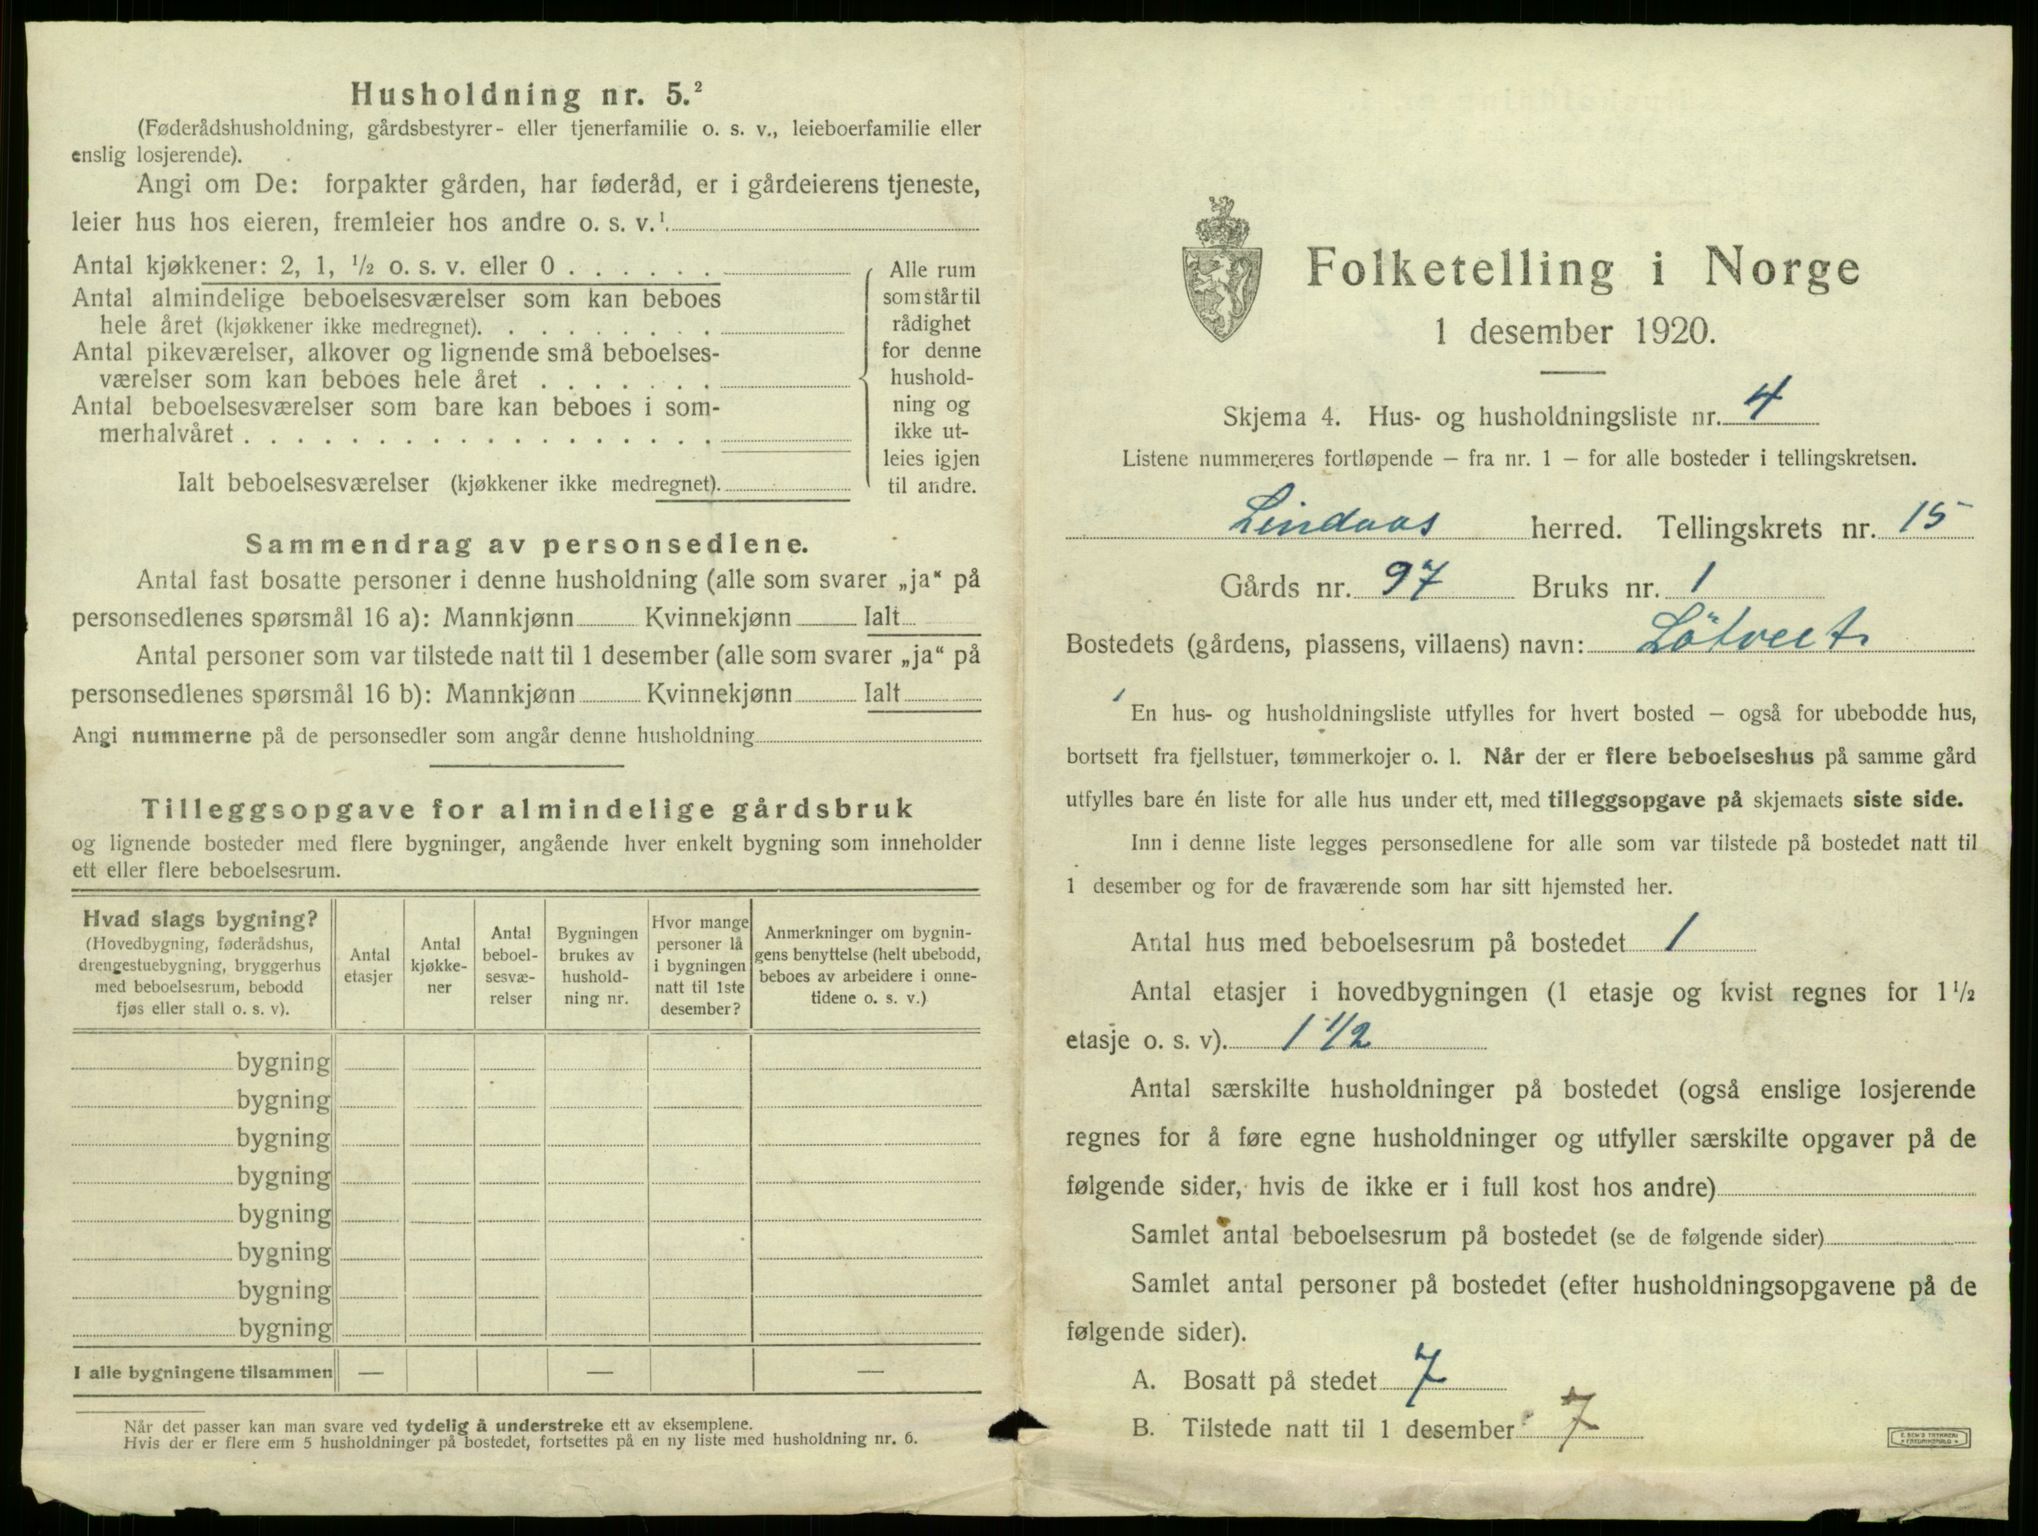 Husholdning nr. 5.²
(Føderådshusholdning, gårdsbestyrer- eller tjenerfamilie o. s. v., leieboerfamilie eller
enslig losjerende).
Angi om De: forpakter gården, har føderåd, er i gårdeierens tjeneste,
leier hus hos eieren, fremleier hos andre o. s. v.¹
Antal kjøkkener: 2, 1, ½ o. s. v. eller 0 . . . . . .
Antal almindelige beboelsesværelser som kan beboes
hele året (kjøkkener ikke medregnet). . . . . . . . .
Antal pikeværelser, alkover og lignende små beboelses-
værelser som kan beboes hele året . . . . . . .
Antal beboelsesværelser som bare kan beboes i som-
merhalvåret . . . . . . . . . . . . . . . . . .
Ialt beboelsesværelser (kjøkkener ikke medregnet).
Alle rum
som står til
rådighet
for denne
hushold-
ning og
ikke ut-
leies igjen
til andre.
Sammendrag av personsedlene.
Antal fast bosatte personer i denne husholdning (alle som svarer „ja“ på
personsedlenes spørsmål 16 a): Mannkjønn Kvinnekjønn Ialt
Antal personer som var tilstede natt til 1 desember (alle som svarer „ja“ på
personsedlenes spørsmål 16 b): Mannkjønn Kvinnekjønn Ialt
Angi nummerne på de personsedler som angår denne husholdning
Tilleggsopgave for almindelige gårdsbruk
og lignende bosteder med flere bygninger, angående hver enkelt bygning som inneholder
ett eller flere beboelsesrum.
Hvad slags bygning?
(Hovedbygning, føderådshus,
drengestuebygning, bryggerhus
med beboelsesrum, bebodd
fjøs eller stall o. s. v).
Antal
etasjer
Antal
kjøkke-
ner
Antal
beboel-
sesvæ-
relser
Bygningen
brukes av
hushold-
ning nr.
Hvor mange
personer lå
i bygningen
natt til 1ste
desember?
Anmerkninger om bygnin-
gens benyttelse (helt ubebodd,
beboes av arbeidere i onne-
tidene o. s. v.)
bygning
bygning
bygning
bygning
bygning
bygning
bygning
bygning
I alle bygningene tilsammen — — —
Når det passer kan man svare ved tydelig å understreke ett av eksemplene.
Hvis der er flere enn 5 husholdninger på bostedet, fortsettes på en ny liste med husholdning nr. 6.
Folketelling i Norge
1 desember 1920.
Skjema 4. Hus- og husholdningsliste nr. 4
Listene nummereres fortløpende — fra nr. 1 — for alle bosteder i tellingskretsen.
Lindaas herred. Tellingskrets nr. 15
Gårds nr. 97 Bruks nr. 1
Bostedets (gårdens, plassens, villaens) navn: Lötveit
En hus- og husholdningsliste utfylles for hvert bosted — også for ubebodde hus,
bortsett fra fjellstuer, tømmerkojer o. l. Når der er flere beboelseshus på samme gård
utfylles bare én liste for alle hus under ett, med tilleggsopgave på skjemaets siste side.
Inn i denne liste legges personsedlene for alle som var tilstede på bostedet natt til
1 desember og for de fraværende som har sitt hjemsted her.
Antal hus med beboelsesrum på bostedet 1
Antal etasjer i hovedbygningen (1 etasje og kvist regnes for 1½
etasje o. s. v). 1 1/2
Antal særskilte husholdninger på bostedet (også enslige losjerende
regnes for å føre egne husholdninger og utfyller særskilte opgaver på de
følgende sider, hvis de ikke er i full kost hos andre)
Samlet antal beboelsesrum på bostedet (se de følgende sider)
Samlet antal personer på bostedet (efter husholdningsopgavene på de
følgende sider).
A. Bosatt på stedet 7
B. Tilstede natt til 1 desember 7